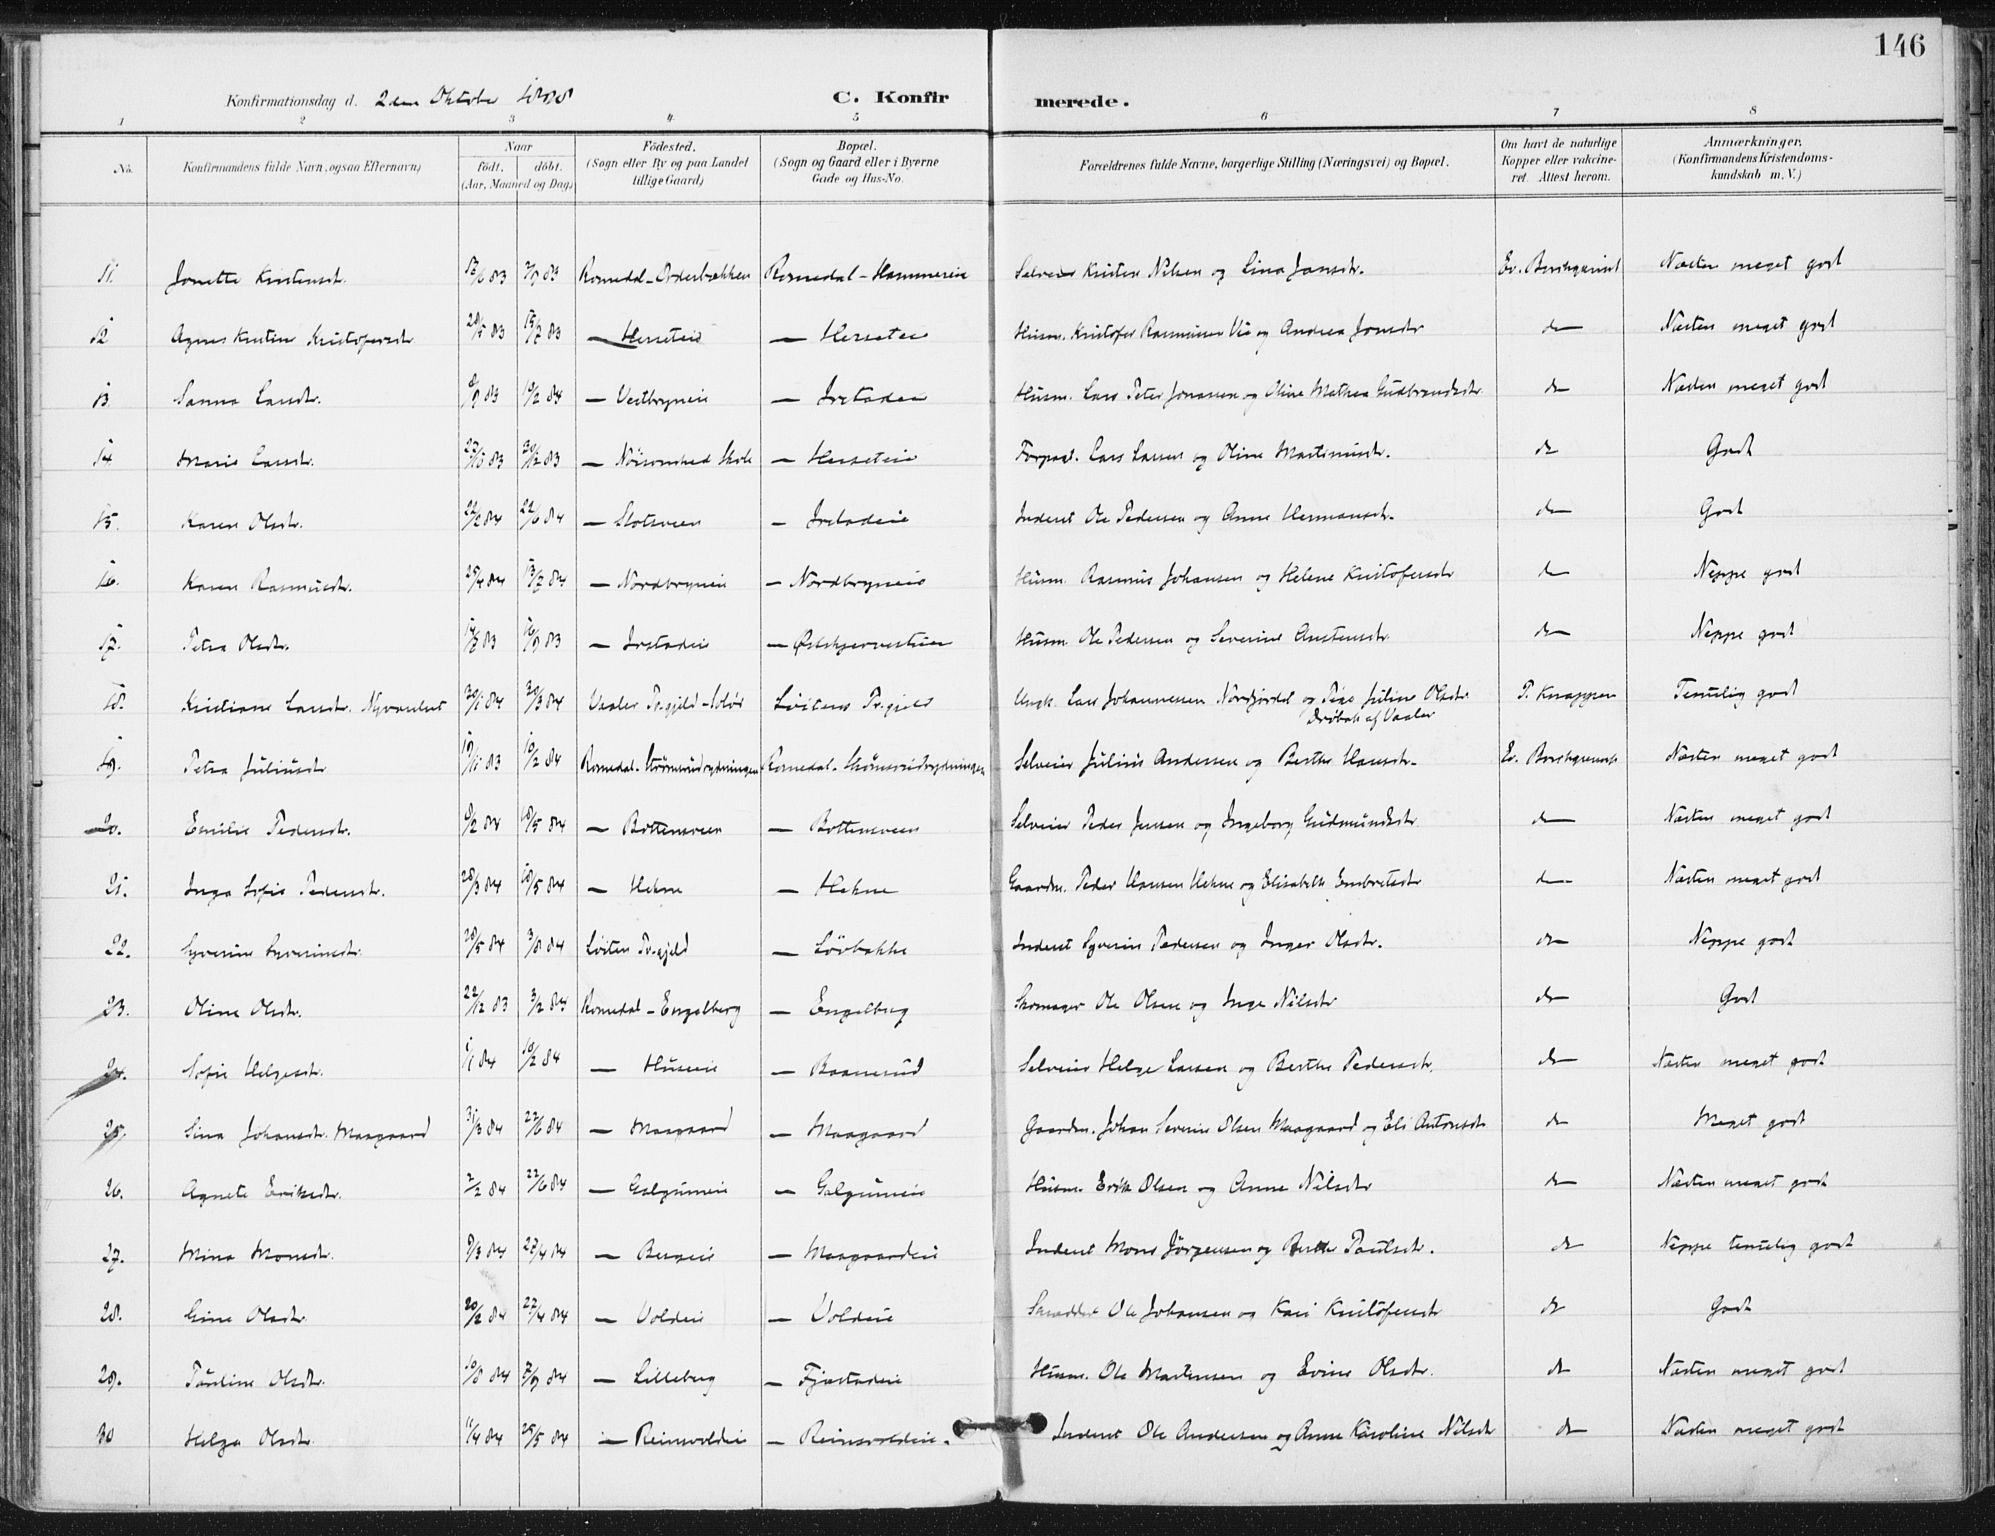 146
Konfirmationsdag d. 2den Oktober C. Konfirmerede.
1 2 3 4 5 6 7 8
No. Konfirmandens fulde Navn, ogsaa Efternavn) Naar födt, döbt. (Aar, Maaned og Dag) Födested. (Sogn eller By og paa Landet tillige Gaard) Bopæl. (Sogn og Gaard eller i Byerne Gade og Hus-No. Forældrenes fulde Navne, borgerlige Stilling (Næringsvei) og Bopæl. Om havt de naturlige Kopper eller vakcineret. Attest herom. Anmærkninger. (Konfirmandens Kristendomskundskab m. V.)
11. Jonette Kristensdr. Romedal - Romedal - Hammereie Selveier Kristen Nilsen og Lina Jansdr. Næsten meget godt
12 Agnes Kristine Kristofersdr. 28/5 83 15/7 83 — Herseteie — Herseteie Husm. Kristofer Rasmussen og Andrea Jonsdr do Næsten meget godt
13. Sanna Larsdr. 10/2 84 — Vestbryneie — Irstadeie Husm. Lars Peter Jonassen og Oline Mathea Gudbrandsdr do Næsten meget godt
14. Marie Larsdr. 30/12 83 — Skole — Herseteie Forpagt. Lars Larsen og Oline Martinusdr. do Godt
15. Karen Olsdr. 22/2 84 22/6 84 — Slotsveen — Irstadeie Inderst Ole Pedersen og Anne Hermansdr. do Godt
16. Karen Rasmusdr. 25/4 84 13/7 84 — Nordbryneie — Nordbryneie Husm. Rasmus Johansen og Helene Kristofersdr do Neppe godt
17. Petra Olsdr. 16/9 83 — Irstadeie — Husm. Ole Pedersen og Severine do Neppe godt
18. Kristiane Larsdr. 30/1 84 30/3 84 Vaaler Pr.gjeld - Solør Löitens Pr.gjeld Ungk. Lars Johannessen og Julie Olsdr. af Vaaler P. Knappen Temelig godt
19. Petra Juliusdr 19/11 83 10/2 84 Romedal - Strömsrudrydningen Romedal - Strömsrudrydningen Selveier Julius Andersen og Berthe Hansdr. Næsten meget godt
20. Emilie Pedersdr. 8/2 84 18/5 84 — Bottensveen — Bottensveen Selveier Peder Jensen og Ingeborg Gudmundsdr do Næsten meget godt
21. Inga Sofie Pedersdr. 28/3 84 18/5 84 — Hekne — Hekne Gaardm. Peder Hansen Hekne og Elisabeth Embretsdr do Næsten meget godt
22. Syverine Syverinsdr. 28/5 84 3/8 84 Löiten Pr.gjeld — Lövbakke Inderst Syverin Pedersen og Inger Olsdr. do Neppe godt
23. Oline Olsdr. 22/12 83 3/2 84 Romedal - Engelberg — Engelberg Skomager Ole Olsen og Inge Nilsdr do Godt
24. Sofie Helgesdr. 1/1 84 10/2 84 — Huseie — Baanerud Selveier Helge Larsen og Berthe Pedersdr. do Næsten meget godt
25. Sina Johansdr. Maagaard 31/3 84 22/6 84 — Maagaard — Maagaard Gaardm. Johan Severin Olsen Maagaard og Eli Antonsdr do Meget godt
26. Agnete Eriksdr. 2/2 84 22/6 84 — Galgumeie — Galgumeie Husm. Erik Olsen og Anne Nilsdr do Næsten meget godt
27. Mina Monsdr. 9/3 84 27/4 84 — Bergeie — Maagaardeie Inderst Mons Jörgensen og Berthe Paulsdr. do Neppe temelig godt
28. Gina Olsdr. 20/2 84 27/4 84 — Voldeie — Voldeie Skrædder Ole Johansen og Kari Kristofersdr do Godt
29. Pauline Olsdr. 10/8 84 7/9 84 — Lilleberg — Fjæstadeie Husm. Ole Martensen og Evine Olsdr. do Næsten meget godt
30 Helga Olsdr. 11/4 84 25/5 84 — Reinsvoldeie — Reinsvoldeie. Inderst Ole Andersen og Anne Karoline Nilsdr do Næsten meget godt